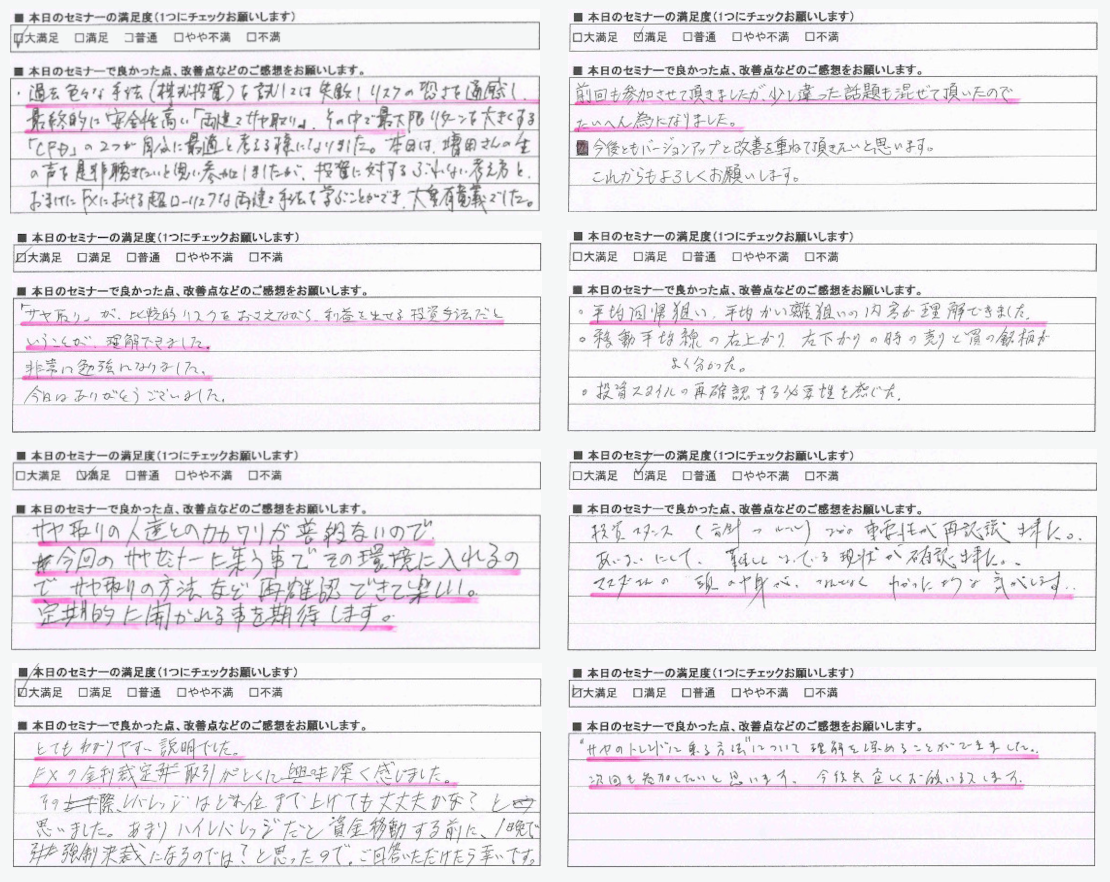 ■ 本日のセミナーの満足度(1つにチェックお願いします)
☑大満足 □満足 □普通 □やや不満 □不満
■ 本日のセミナーで良かった点、改善点などのご感想をお願いします。
・過去色々な手法(株式投資)を試しては失敗しリスクの恐さを痛感し、
最終的に安全性高い「両建てサヤ取り」、その中で最大限リターンを大きくする
「CFD」の2つが自分に最適と考える様になりました。本日は、増田さんの生
の声を是非聴きたいと思い参加しましたが、投資に対するぶれない考え方と、
おまけにFXにおける超ローリスクな両建て手法を学ぶことができ、大変有意義でした。
■ 本日のセミナーの満足度(1つにチェックお願いします)
□大満足 ☑満足 □普通 □やや不満 □不満
■ 本日のセミナーで良かった点、改善点などのご感想をお願いします。
前回も参加させて頂きましたが、少し違った話題も混ぜて頂いたので
たいへん為になりました。
今後ともバージョンアップと改善を重ねて頂きたいと思います。
これからもよろしくお願いします。
■ 本日のセミナーの満足度(1つにチェックお願いします)
☑大満足 □満足 □普通 □やや不満 □不満
■ 本日のセミナーで良かった点、改善点などのご感想をお願いします。
「サヤ取り」が、比較的リスクをおさえながら、利益を出せる投資手法だと
いうことが、理解できました。
非常に勉強になりました。
今日はありがとうございました。
■ 本日のセミナーの満足度(1つにチェックお願いします)
□大満足 □満足 □普通 □やや不満 □不満
■ 本日のセミナーで良かった点、改善点などのご感想をお願いします。
○平均回帰狙い、平均かい離狙いの内容が理解できました。
○移動平均線の右上がり 右下がりの時の売りと買の銘柄が
よく分かった。
○投資スタイルの再確認する必要性を感じた。
■ 本日のセミナーの満足度(1つにチェックお願いします)
□大満足 ☑満足 □普通 □やや不満 □不満
■ 本日のセミナーで良かった点、改善点などのご感想をお願いします。
サヤ取りの人達とのカカワリが普段ないので
今回のサヤセミナーに集う事でその環境に入れるの
で サヤ取りの方法など再確認できて楽しい。
定期的に開かれる事を期待します。
■ 本日のセミナーの満足度(1つにチェックお願いします)
□大満足 ☑満足 □普通 □やや不満 □不満
■ 本日のセミナーで良かった点、改善点などのご感想をお願いします。
投資スタンス ( ルール) の重要性が再認識出来た。
あいまいにして、難しくなっている現状が確認出来た。
の頭の中身が、なんとなく わかったような気がします。
■ 本日のセミナーの満足度(1つにチェックお願いします)
☑大満足 □満足 □普通 □やや不満 □不満
■ 本日のセミナーで良かった点、改善点などのご感想をお願いします。
とてもわかりやすい説明でした。
FXの金利裁定取引がとくに興味深く感じました。
その際、レバレッジはどれ位まで上げても大丈夫かな?と
思いました。あまりハイレバレッジだと資金移動する前に、1晩で
強制決裁になるのでは?と思ったので、ご回答いただけたら幸いです。
■ 本日のセミナーの満足度(1つにチェックお願いします)
☑大満足 □満足 □普通 □やや不満 □不満
■ 本日のセミナーで良かった点、改善点などのご感想をお願いします。
"サヤのトレンドに乗る方法"について理解を深めることができました。
次回も参加したいと思います。今後も宜しくお願いします。